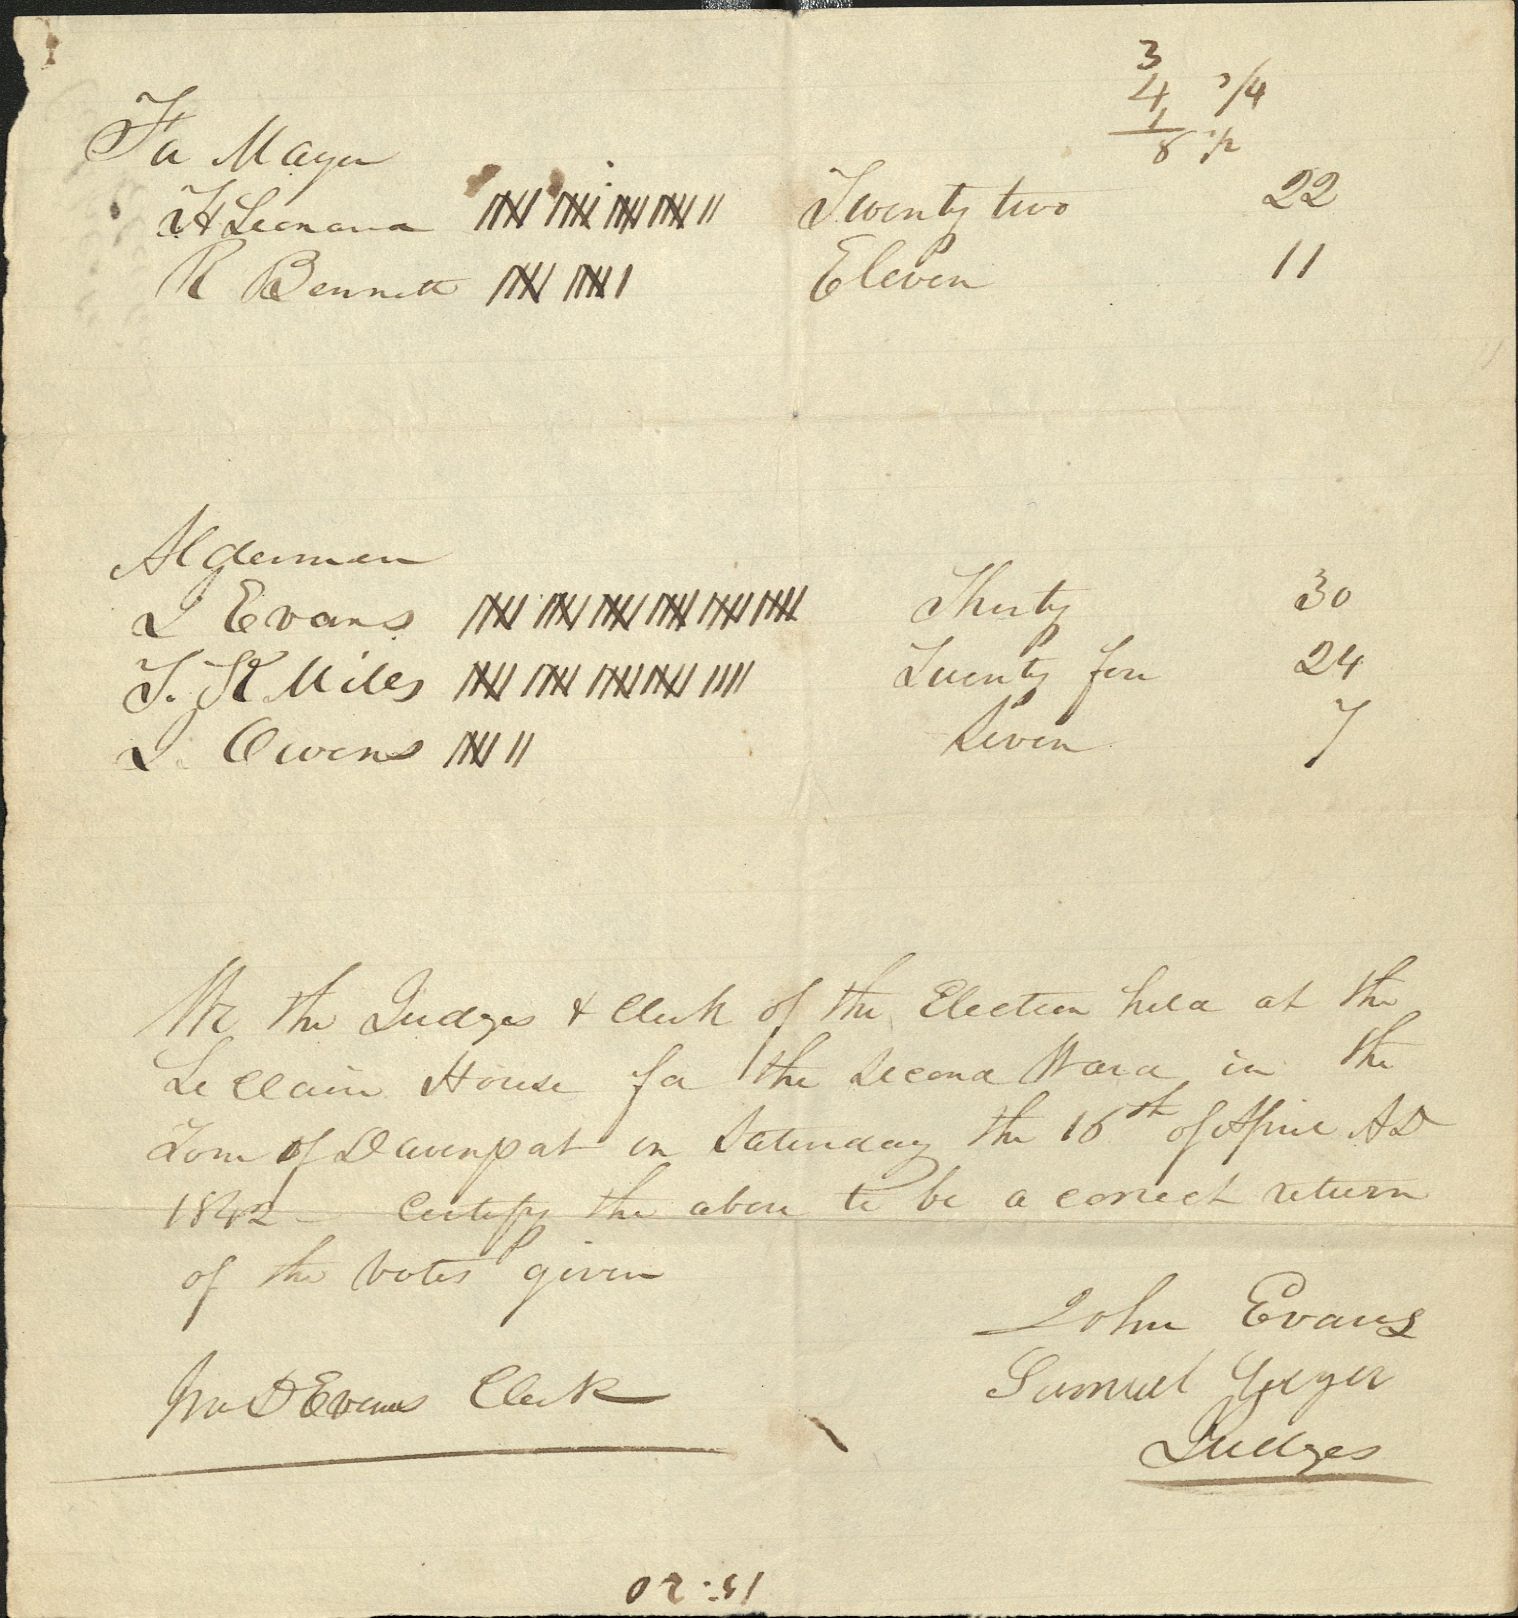 3
4 3/4
1
8 1/2
For Mayor
H Leonard Twenty two 22
R Bennett Eleven 11
Aldermen
J Evans Thirty 30
T. K Miles Twenty four 24
J. Owens Seven 7
We the Judges & Clerk of the Election held at the
Le Clair House for the Second Ward in the
Town of Davenport on Saturday the 16th of April AD
1842 — Certify the above to be a correct return
of the votes given
John Evans
Samuel Geyer
Judges
Jno D Evans Clerk
15:20